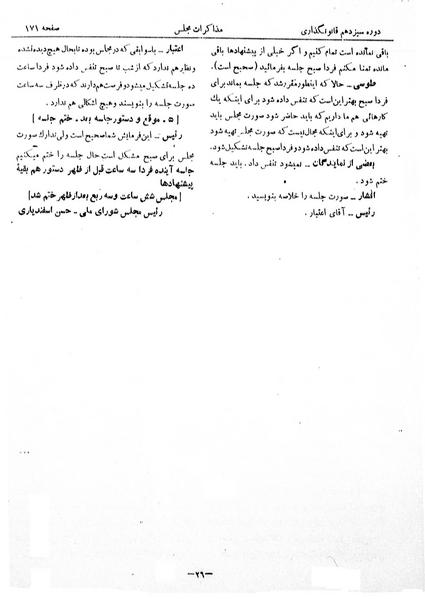 دوره سیزدهم قانونگذاری
مذاکرات مجلس
صفحه ۱۷۱
باقی نمانده است تمام کنیم و اگر خیلی از پیشنهادها باقی
مانده تمنا میکنم فردا صبح جلسه بفرمائید (صحیح است).
طوسی ـ حالا که اینطور مقرر شد که جلسه بماند برای
فردا صبح بهتر این است که تنفس داده شود برای اینکه یک
کارهائی هم ما داریم که باید حاضر شود صورت مجلس باید
تهیه شود و برای اینکه مجال نیست که صورت مجلس تهیه شود
بهتر این است که تنفس داده شود و فردا صبح جلسه تشکیل شود.
بعضی از نمایندگان ـ نمیشود تنفس داد. باید جلسه
ختم شود.
افشار ـ صورت جلسه را خلاصه بنویسید.
رئیس ـ آقای اعتبار.
اعتبار ـ با سوابقی که در مجلس بوده تا بحال هیچ دیده نشده
و نظیر هم ندارد که از شب تا صبح تنفس داده شود فردا ساعت
ده جلسه تشکیل میشود و فرصت هم دارند که در ظرف سه ساعت
صورت جلسه را بنویسند و هیچ اشکالی هم ندارد.
[۵ ـ موقع و دستور جلسه بعد ـ ختم جلسه]
رئیس ـ این فرمایش شما صحیح است ولی تدارک صورت
مجلس برای صبح مشکل است حال جلسه را ختم میکنیم
جلسه آینده فردا سه ساعت قبل از ظهر دستور هم بقیهٔ
پیشنهادها
[مجلس شش ساعت و سه ربع بعد از ظهر ختم شد]
رئیس مجلس شورای ملی ـ حسن اسفندیاری
ـ۲۶ـ